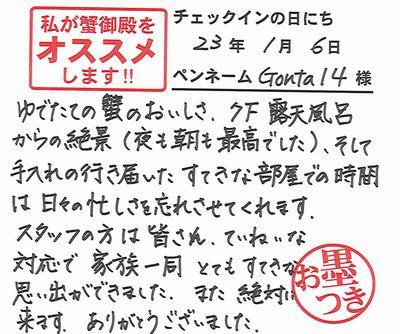 私が蟹御殿を
オススメ
します!!
チェックインの日にち
23年 1月 6日
ペンネーム Gonta14 様
ゆでたての蟹のおいしさ、7F 露天風呂
からの絶景(夜も朝も最高でした)、そして
手入れの行き届いたすてきな部屋での時間
は日々の忙しさを忘れさせてくれます。
スタッフの方は皆さん、ていねいな
対応で 家族一同 とてもすてきな
思い出ができました。また絶対に
来ます。ありがとうございました。
お墨つき